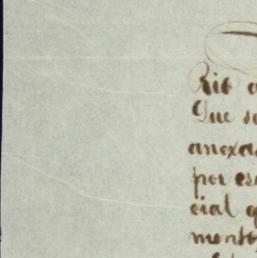 Rio
Que
anexa
por es
cial q
mento